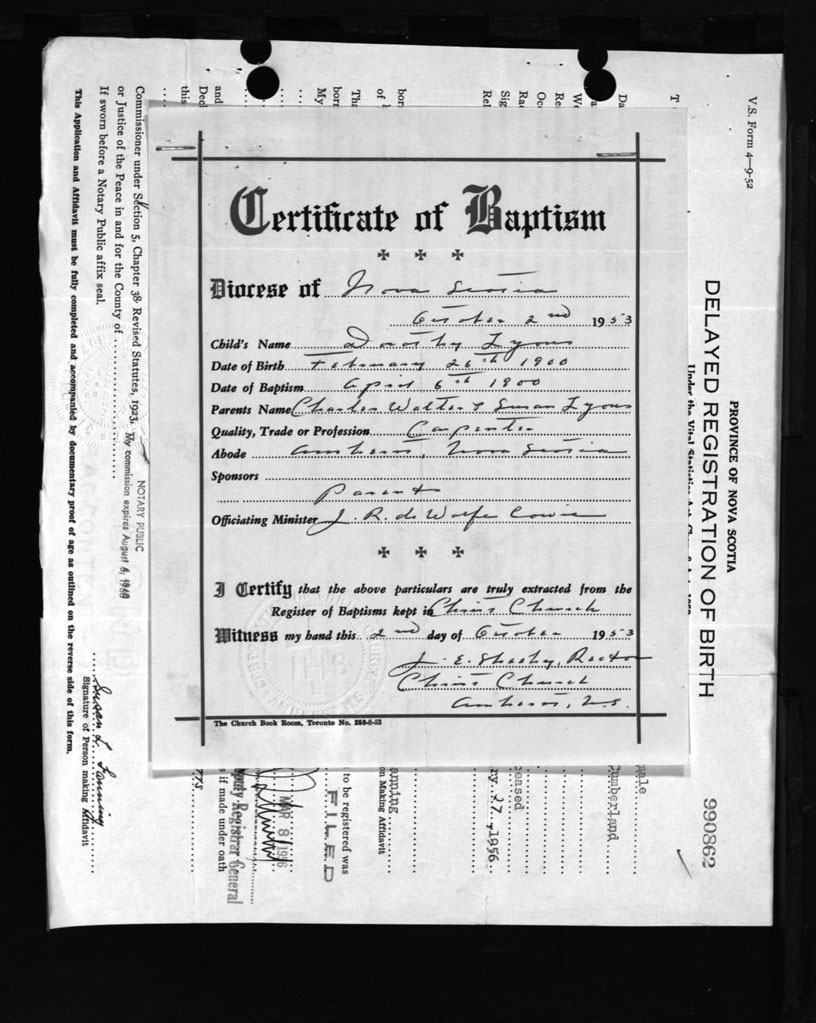 Certificate of Baptism
Diocese of Nova Scotia
October 2nd 1953
Child's Name Dorothy Lyons
Date of Birth February 26th 1900
Date of Baptism April 6th 1900
Parents Name Charles Walter & Susan Lyons
Quality, Trade or Profession Carpenter
Abode Amherst, Nova Scotia
Sponsors
Parents
Officiating Minister J. R. de Wolfe Cowie
I Certify that the above particulars are truly extracted from the
Register of Baptisms kept in Christ Church
Witness my hand this 2nd day of October 1953
J. E. Rector
Christ Church
Amherst, N.S.
The Church Book Room, Toronto No.
V.S. Form 4—9-52
PROVINCE OF NOVA SCOTIA
DELAYED REGISTRATION OF BIRTH
990862
male
Cumberland
ceased
ry 27, 1956
anning
on Making Affidavit
to be registered was
FILED
MAR 8 1956
Deputy Registrar General
s if made under oath
T
Da
We
Re
Oc
Ra
Sig
Rel
born
of
Tha
born
My
and
Decl
this
Commissioner under Section 5, Chapter 38 Revised Statutes, 1923. My commission expires August 6, 1960
NOTARY PUBLIC
or Justice of the Peace in and for the County of
If sworn before a Notary Public affix seal.
Susan L. Fanning
Signature of Person making Affidavit
This Application and Affidavit must be fully completed and accompanied by documentary proof of age as outlined on the reverse side of this form.